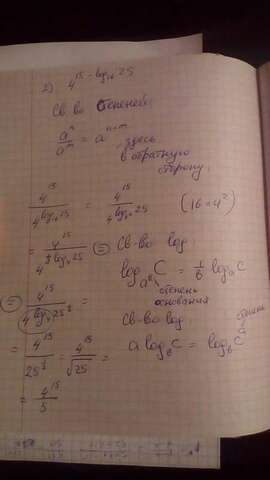 2) 4^{15 - log_{16} 25}
Св-во степеней
a^n / a^m = a^{n-m} здесь
в обратную
сторону.
4^{15} / 4^{log_{16} 25} = 4^{15} / 4^{log_{4^2} 25} (16 = 4^2)
= 4^{15} / 4^{1/2 log_4 25} = Св-во log
log_{a^b} C = 1/b log_a C
степень
основания
= 4^{15} / 4^{log_4 25^{1/2}} =
Св-во log
= 4^{15} / 25^{1/2} = 4^{15} / √25 = a log_b C = log_b C^a
= 4^{15} / 5